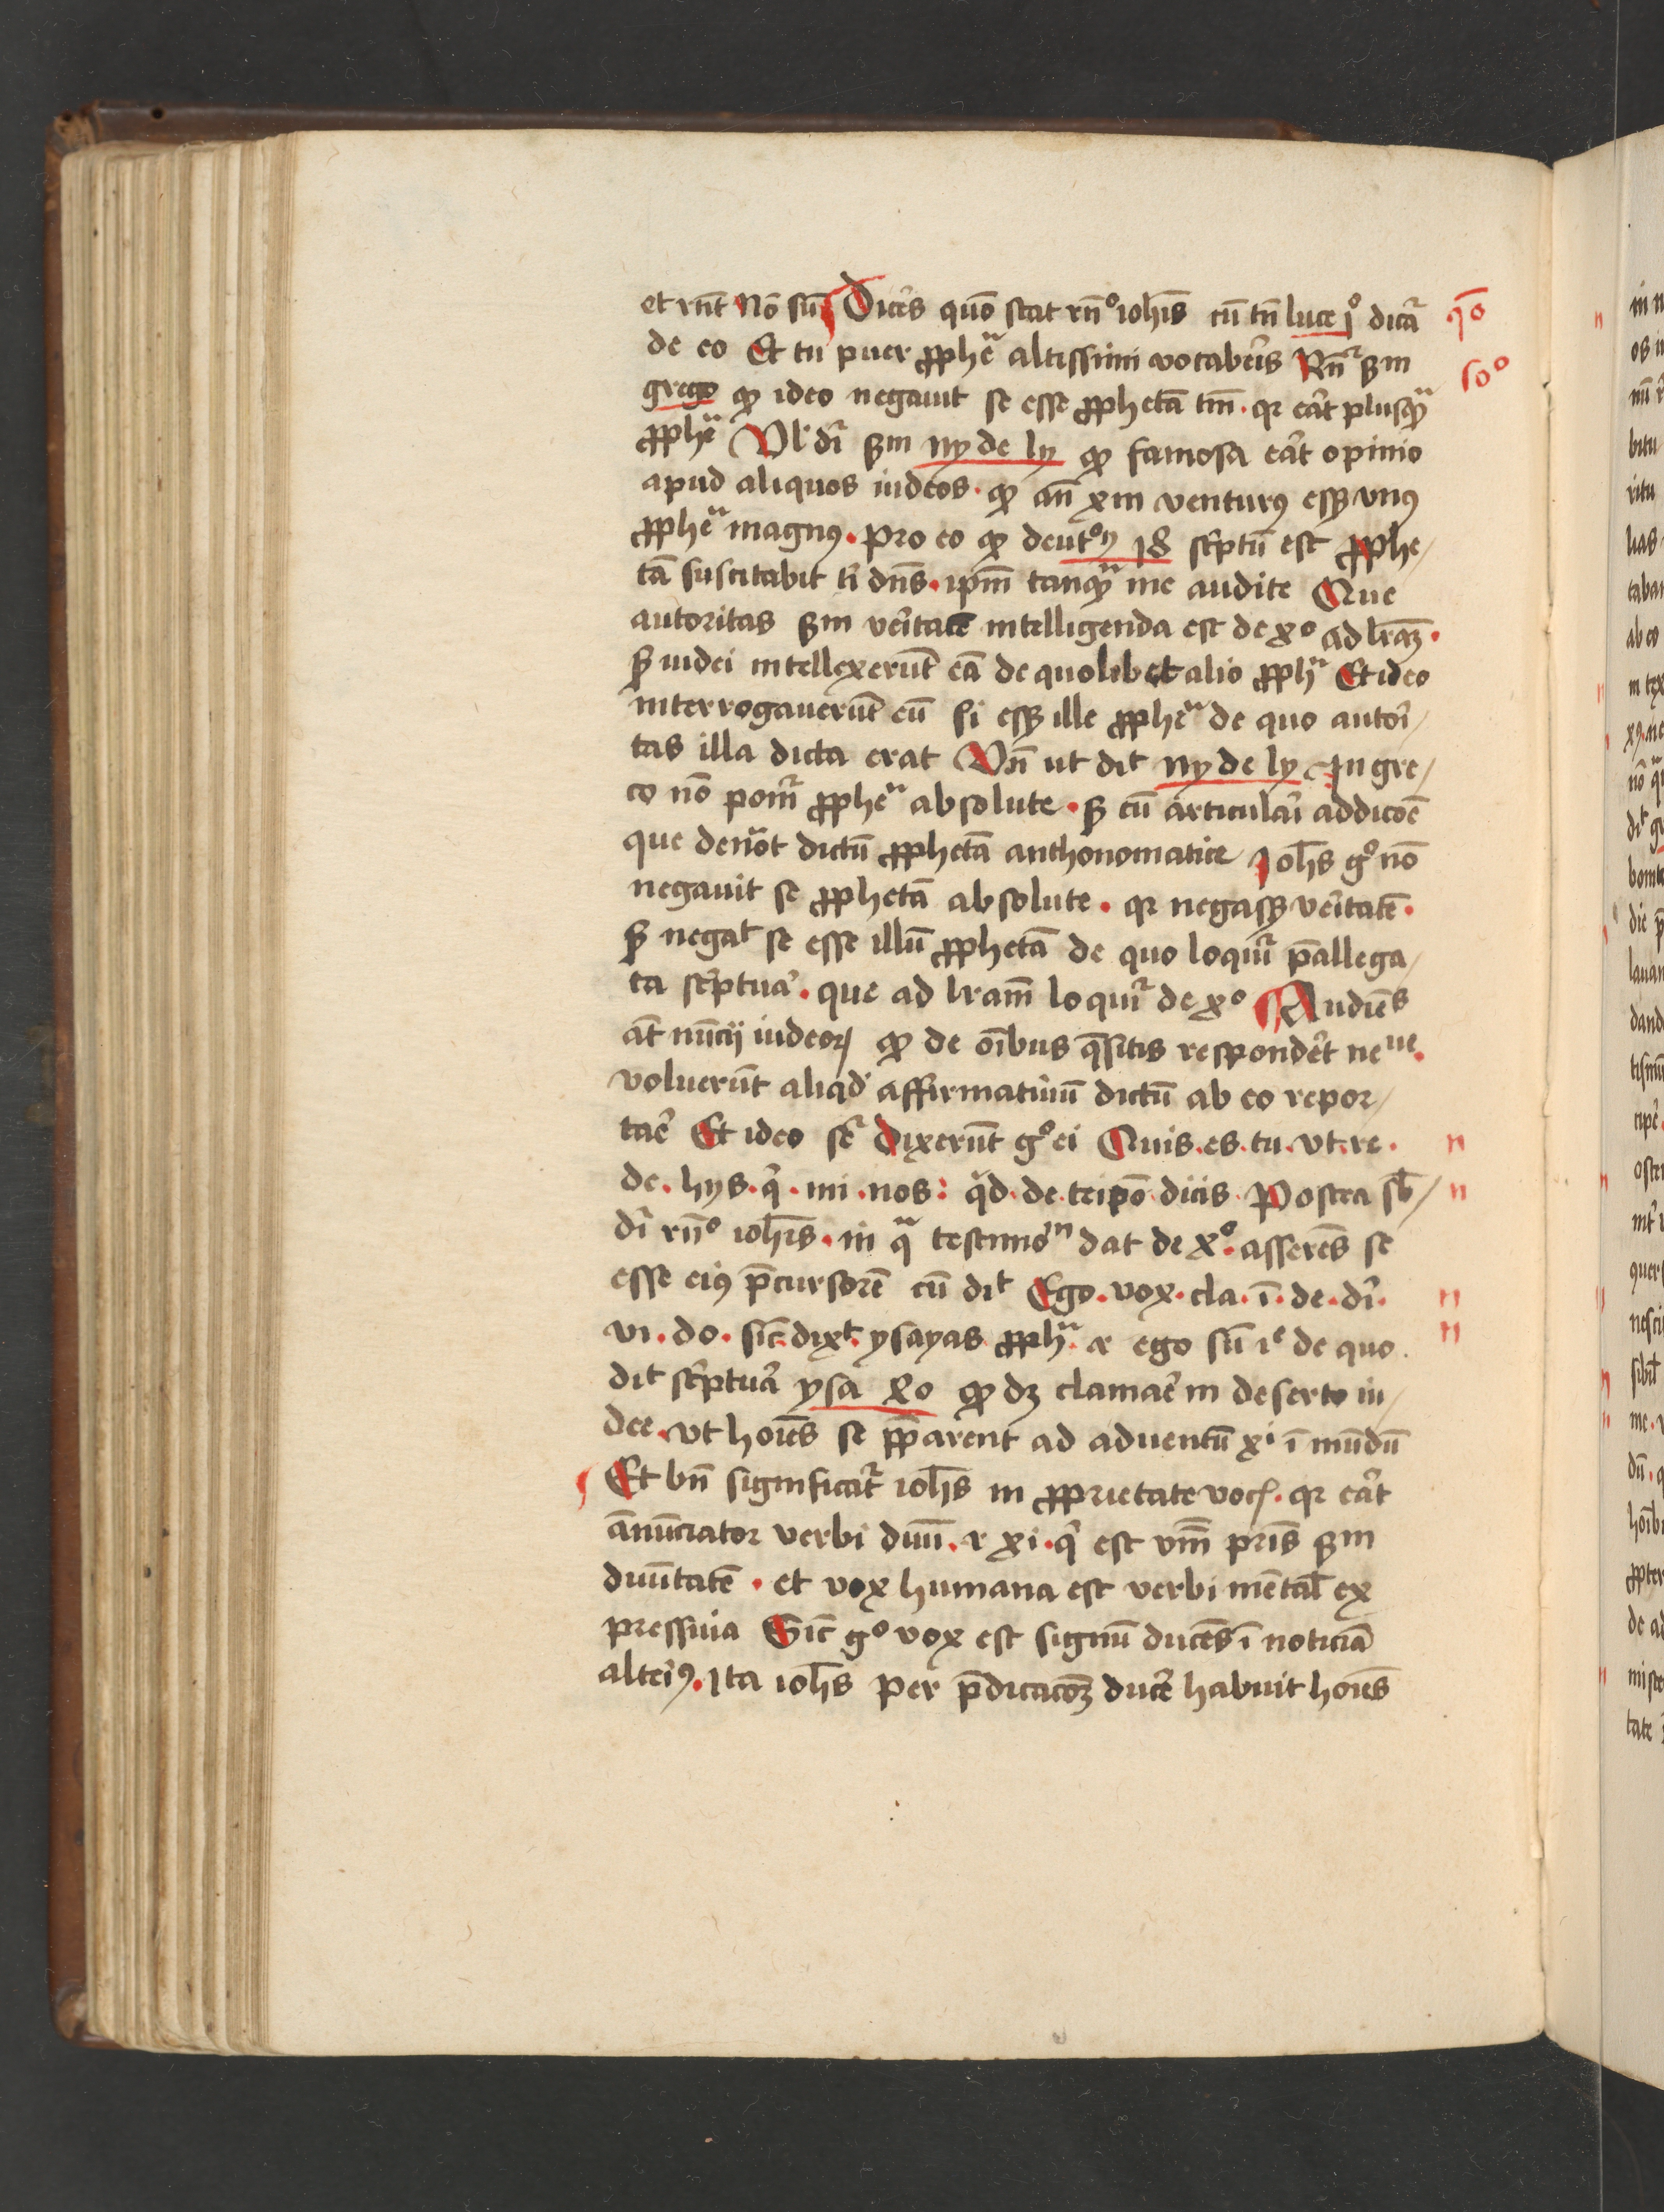 et rn̄t Nō sū Dices quō stat rn̄º ioh̄is cū tn̄ luce jº dicat᷑
de eo Et tu puer ꝓpheᵃ altissimi vocaberis Rn̄t᷑ ẜm
grego ꝙ ideo negauit se esse ꝓphetā tm̄ · qꝛ erat plusqᵃꝫ
ꝓpheᵃ Vl' dr̄ ẜm ny de ly ꝙ famosa erat opinio
apud aliquos iudeos · ꝙ an̄ xm̄ venturꝰ esꝫ vnꝰ
ꝓpheᵃ magnꝰ · pro eo ꝙ deutºꝰ 18 sc̓ptū est ꝓphe⸗
tā suscitabit ti dn̄s · ip̄m tanqᵃꝫ me audite Que
autoritas ẜm veritatē intelligenda est de xº ad lr̄aꝫ ·
ẜ iudei intellexerūt eā de quolibet alio ꝓphᵃ Et ideo
interrogauerūt eū si esꝫ ille ꝓpheᵃ de quo autori⸗
tas illa dicta erat Vn̄ ut dit ny de ly In gre⸗
co nō ponit᷑ ꝓpheᵃ absolute · ẜ cū articulari addicōe
que denōt dictū ꝓphetā anthonomatice Ioh̄s gº nō
negauit se ꝓphetā absolute · qꝛ negasꝫ veritatē ·
ẜ negat se esse illū ꝓphetā de quo loquit᷑ p̄allega⸗
ta sc̓ptura · que ad lr̄am loquit᷑ de xº Audiēs
at̄ nūcij iudeoꝝ ꝙ de oībus q̄sitis respondet neᵘᵉ ·
voluerūt aliqd' affirmatiuū dictū ab eo repor⸗
tare Et ideo Dixerūt gº ei Quis · es · tu · vt · re ·
de · hys · q̓ · mi · nos : qd · de · teipō dicis · Postea sb⸗
dr̄ rn̄º ioh̄is · in qᵃ testimoⁿ dat de xº · asserēs se
esse eiꝰ p̄cursorē cū dit Ego · vox · cla · ī · de · di ·
vi · do · sic · dixt · ysayas ꝓphᵃ · ⁊ ego sū iᵉ de quo ·
dit sc̓ptura ysa xlo ꝙ dꝫ clamare in deserto iu⸗
dee · vt hoīes se p̄parent ad aduentū xⁱ ī mūdū
Et bn̄ significat᷑ ioh̄s in ꝓprietate vocꝭ · qꝛ erat
ānūciator verbi diui · ⁊ xi · q̓ est vm̄ pris ẜm
diuitatē · et vox humana est verbi mētal' ex
pressiua Sic gº vox est signū ducēs ī noticiā
alteriꝰ · Ita ioh̄s per p̄dicacōꝫ ducere habuit hoīes
qō
soº
n
n
n
n